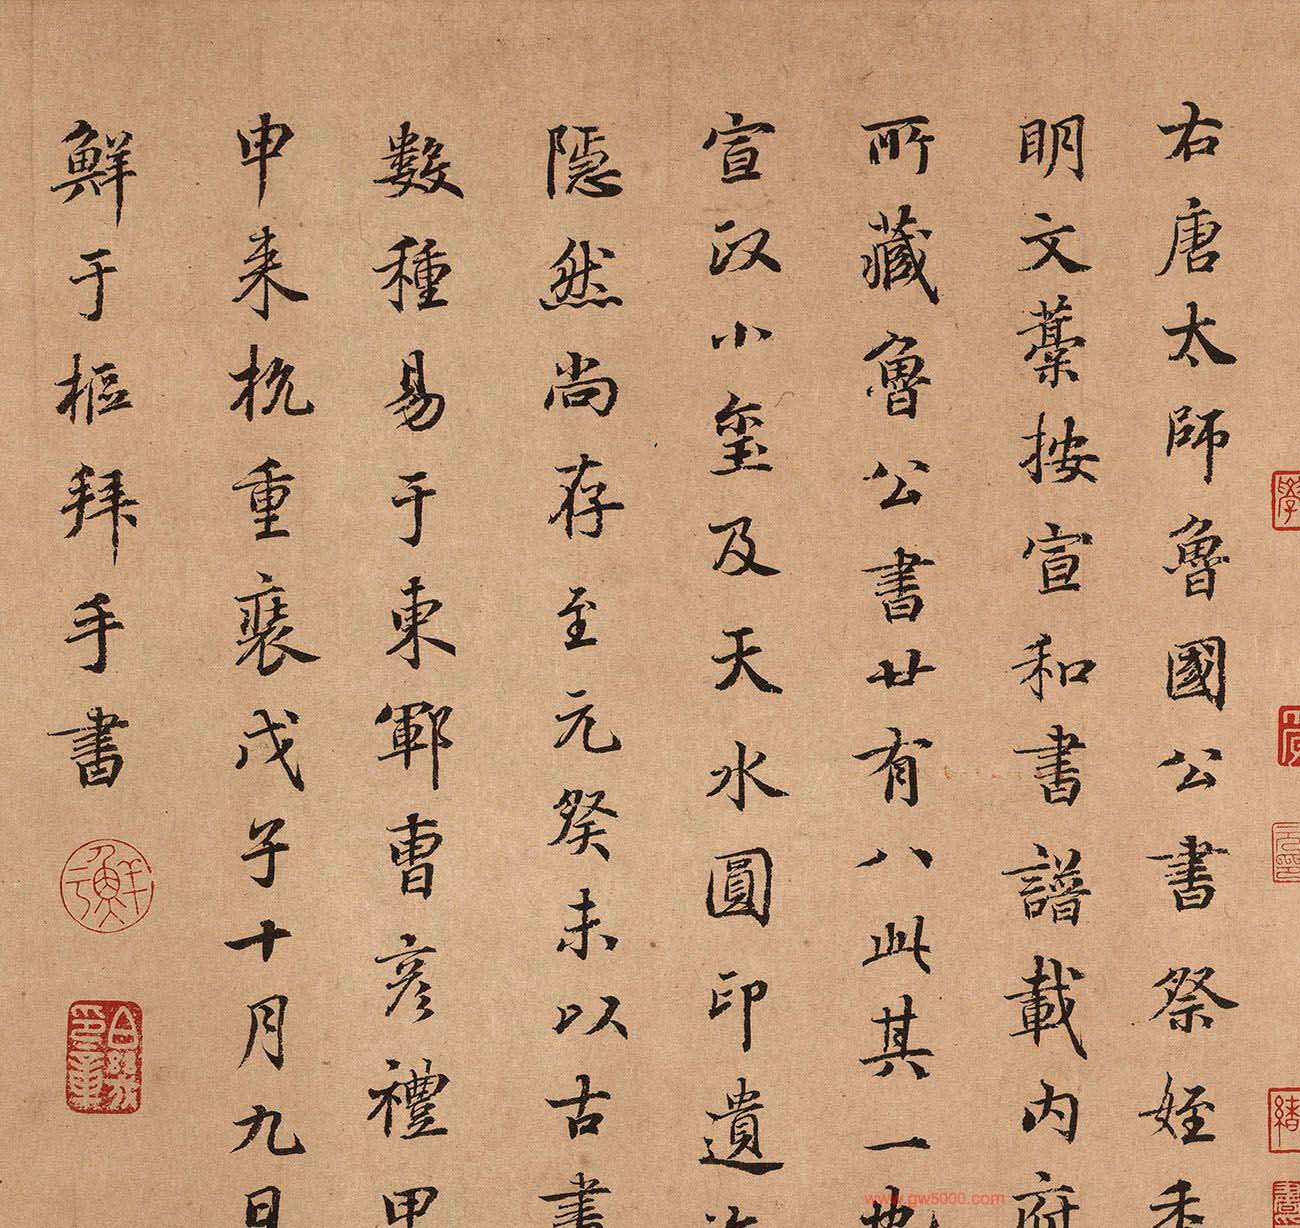 右唐太師魯國公書祭姪季
明文藁按宣和書譜載內府
所藏魯公書廿有八此其一也
宣政小璽及天水圓印遺
隱然尚存至元癸未以古書
數種易于東鄆曹彦禮甲
申来杭重裝戊子十月九日
鮮于樞拜手書
www.gw5000.com